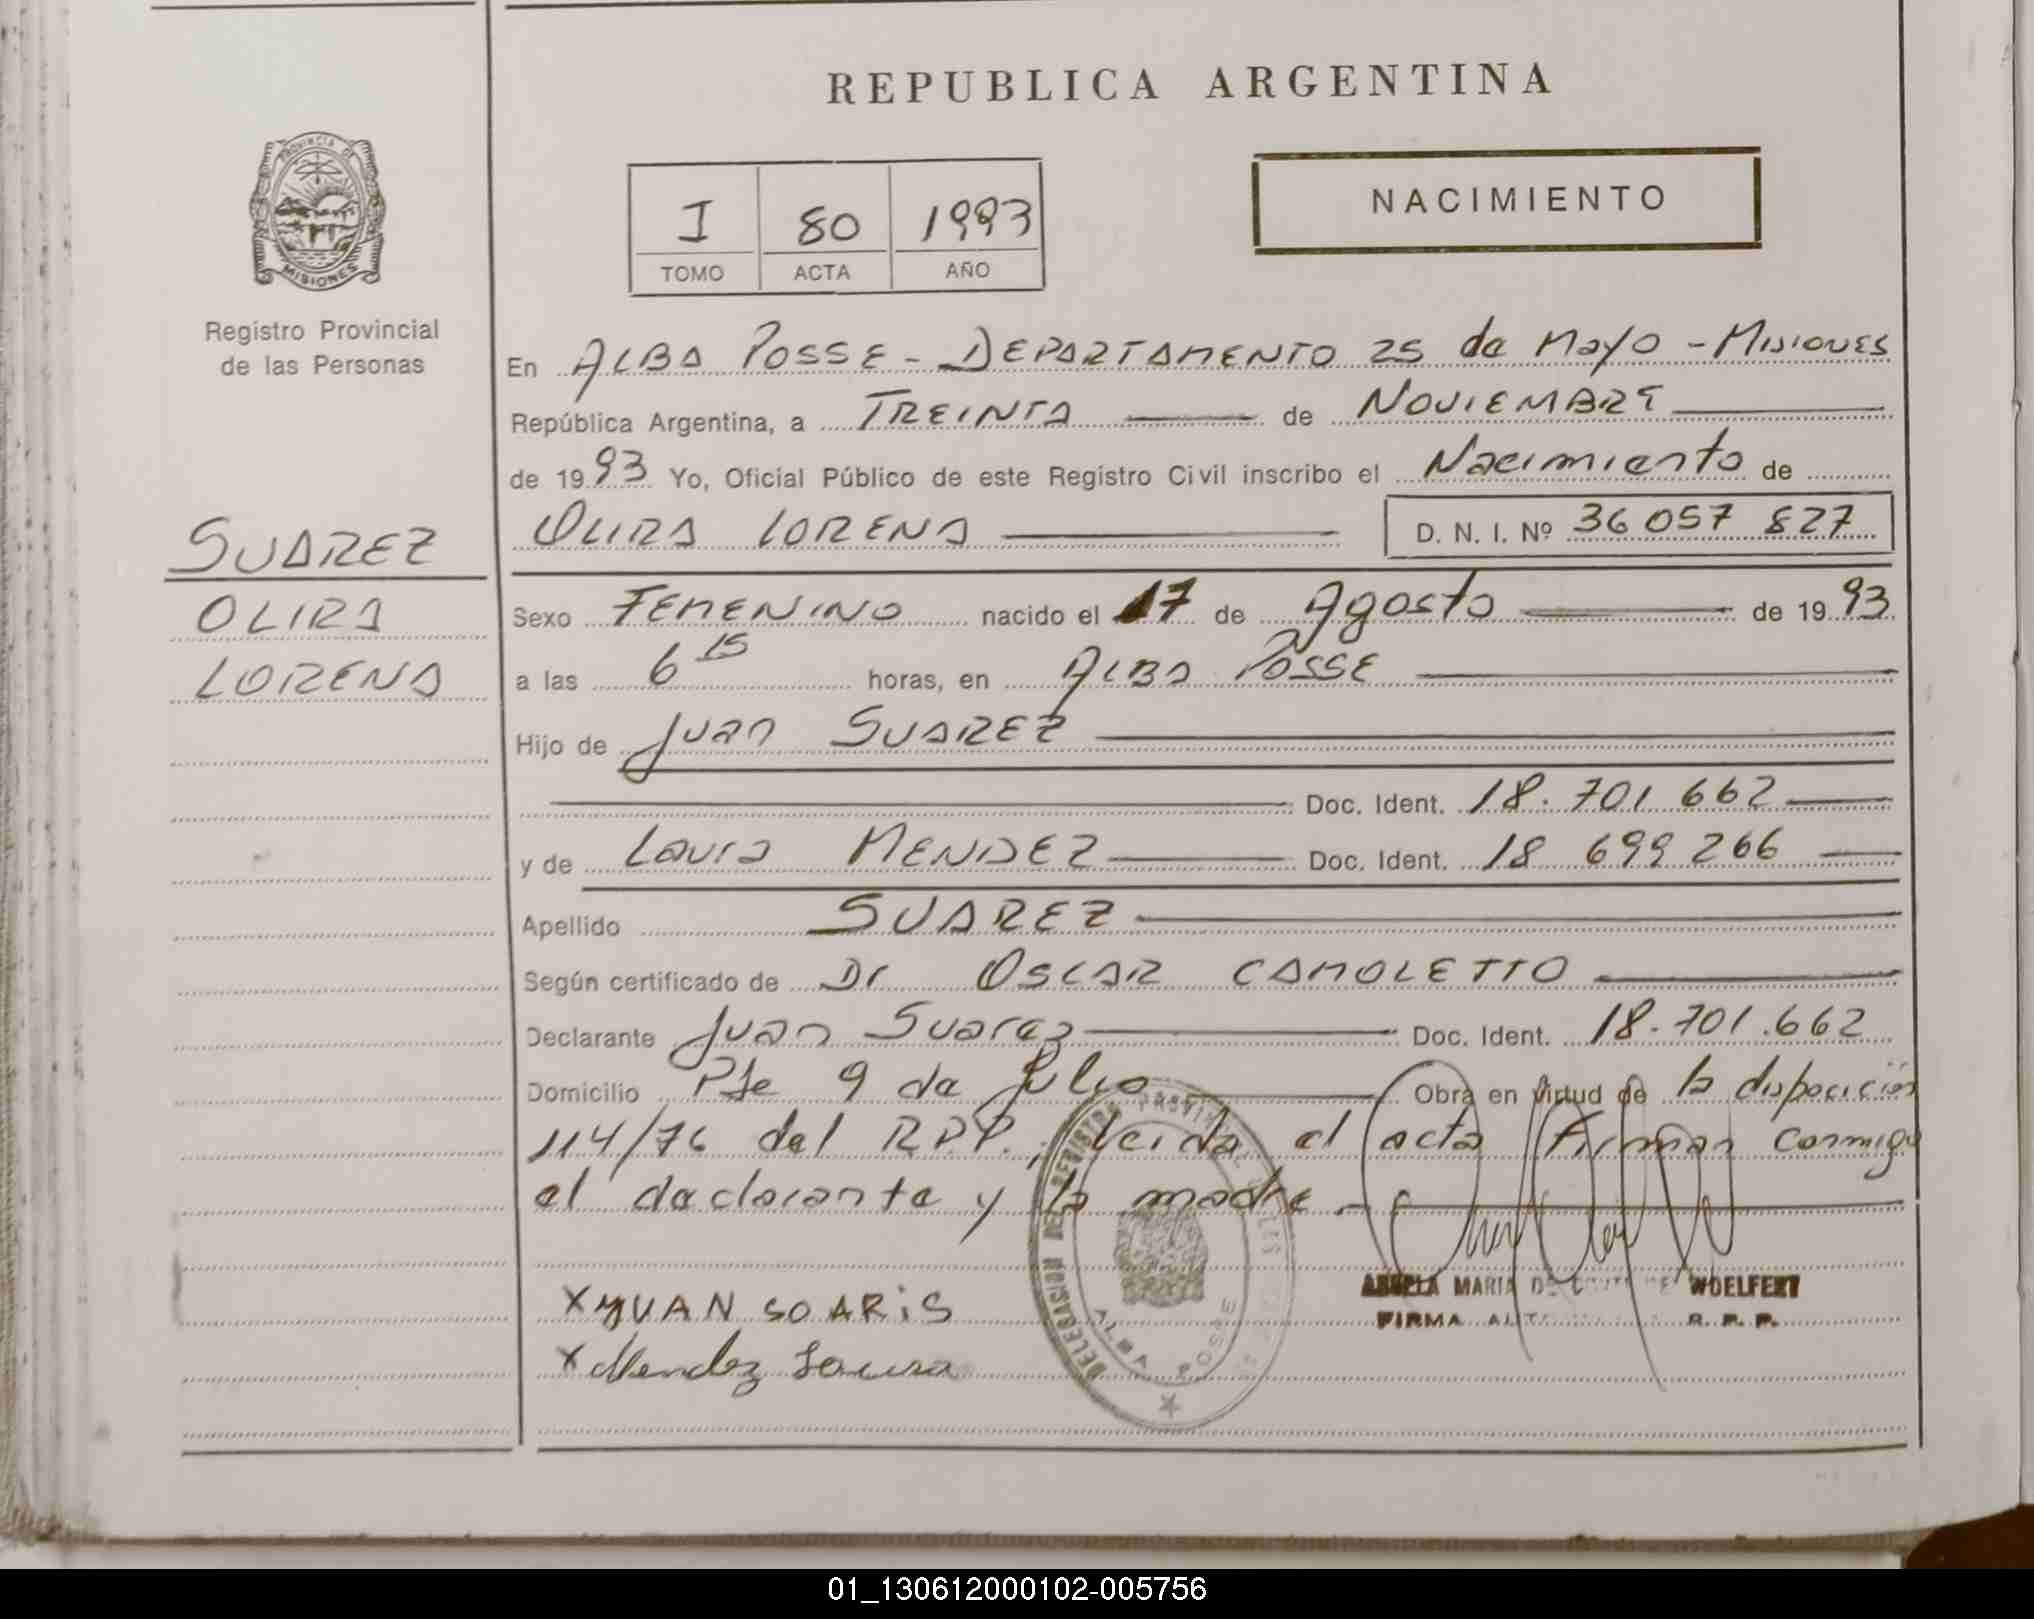 REPUBLICA ARGENTINA
PROVINCIA DE
MISIONES
Registro Provincial
de las Personas
I 80 1993
TOMO ACTA AÑO
NACIMIENTO
En ALBA POSSE - DEPARTAMENTO 25 de Mayo - MISIONES
República Argentina, a TREINTA de NOVIEMBRE
de 1993 Yo, Oficial Público de este Registro Civil inscribo el Nacimiento de
OLIRA LORENA D. N. I. Nº 36 057 827
SUAREZ
OLIRA
LORENA
Sexo FEMENINO nacido el 17 de Agosto de 1993
a las 6 15 horas, en ALBA POSSE
Hijo de Juan SUAREZ
Doc. Ident. 18.701.662
y de Laura MENDEZ Doc. Ident. 18 699 266
Apellido SUAREZ
Según certificado de Dr OSCAR CAMOLETTO
Declarante Juan Suarez Doc. Ident. 18.701.662
Domicilio Pje 9 de Julio Obra en virtud de la disposición
114/76 del R.P.P.; leida el acta firman conmigo
el declarante y la madre.-
X YUAN SOARIS
X Mendez Laura
DELEGACION DEL REGISTRO PROVINCIAL DE LAS
ALBA POSSE
MARIA DE WOELFERT
FIRMA R. P. P.
01_130612000102-005756